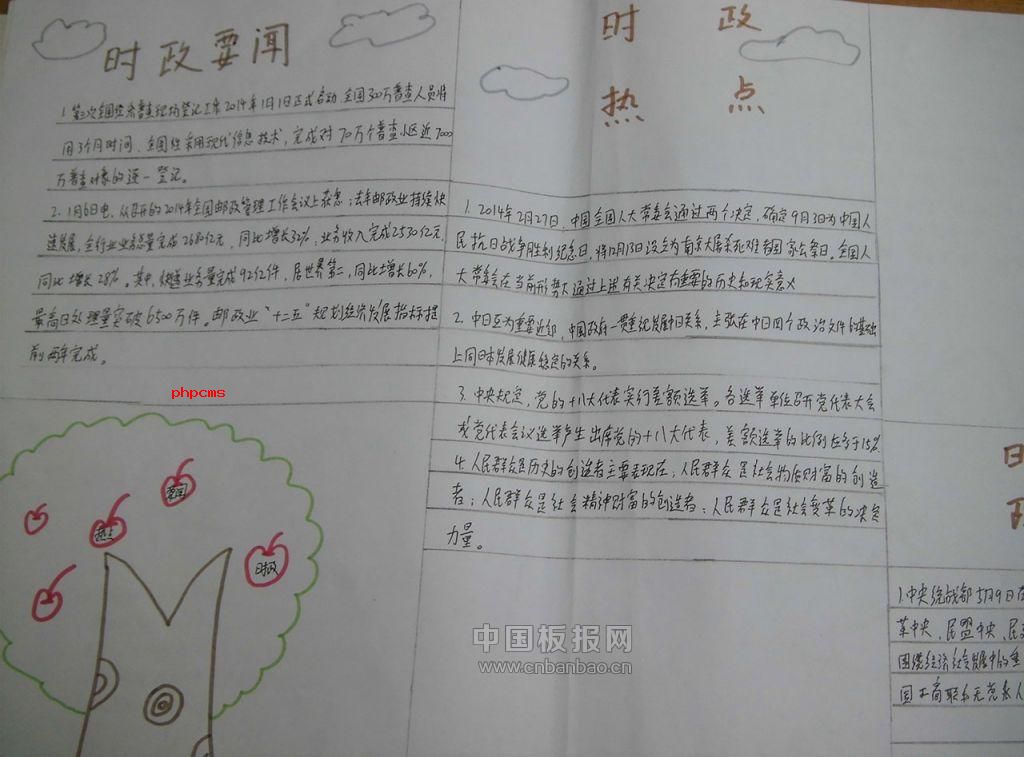 时政要闻
1.第三次全国经济普查现场登记工作2014年1月1日正式启动.全国300万普查人员将
用3个月时间、全国性采用现代信息技术,完成对70万个普查小区近7000
万普查对象的逐一登记。
2.1月6日电,从召开的2014年全国邮政管理工作会议上获悉;去年邮政业持续快
速发展,全行业业务总量完成2680亿元,同比增长32%,业务收入完成2530亿元.
同比增长28%。其中,快递业务量完成92亿件,居世界第二,同比增长60%,
最高日处理量突破6500万件。邮政业“十二五”规划经济发展指标提
前两年完成。
phpcms
要闻
热点
时政
时政
热点
1.2014年2月27日,中国全国人大常委会通过两个决定,确定9月3日为中国人
民抗日战争胜利纪念日,将12月13日设立为南京大屠杀死难者国家公祭日。全国人
大常委会在当前形势下通过上述有关决定有重要的历史和现实意义
2.中日互为重要近邻,中国政府一贯重视发展中日关系,主张在中日四个政治文件的基础
上同日本发展健康稳定的关系。
3.中央规定,党的十八大代表实行差额选举。各选举单位召开党代表大会
或党代表会议选举产生出席党的十八大代表,差额选举的比例应多于15%
4.人民群众是历史的创造者主要表现在:人民群众是社会物质财富的创造
者;人民群众是社会精神财富的创造者;人民群众是社会变革的决定
力量。
1.中央统战部5月9日在
革中央、民盟中央、民
围绕经济社会发展中的重
国工商联和无党派人
中国板报网
www.cnbanbao.cn